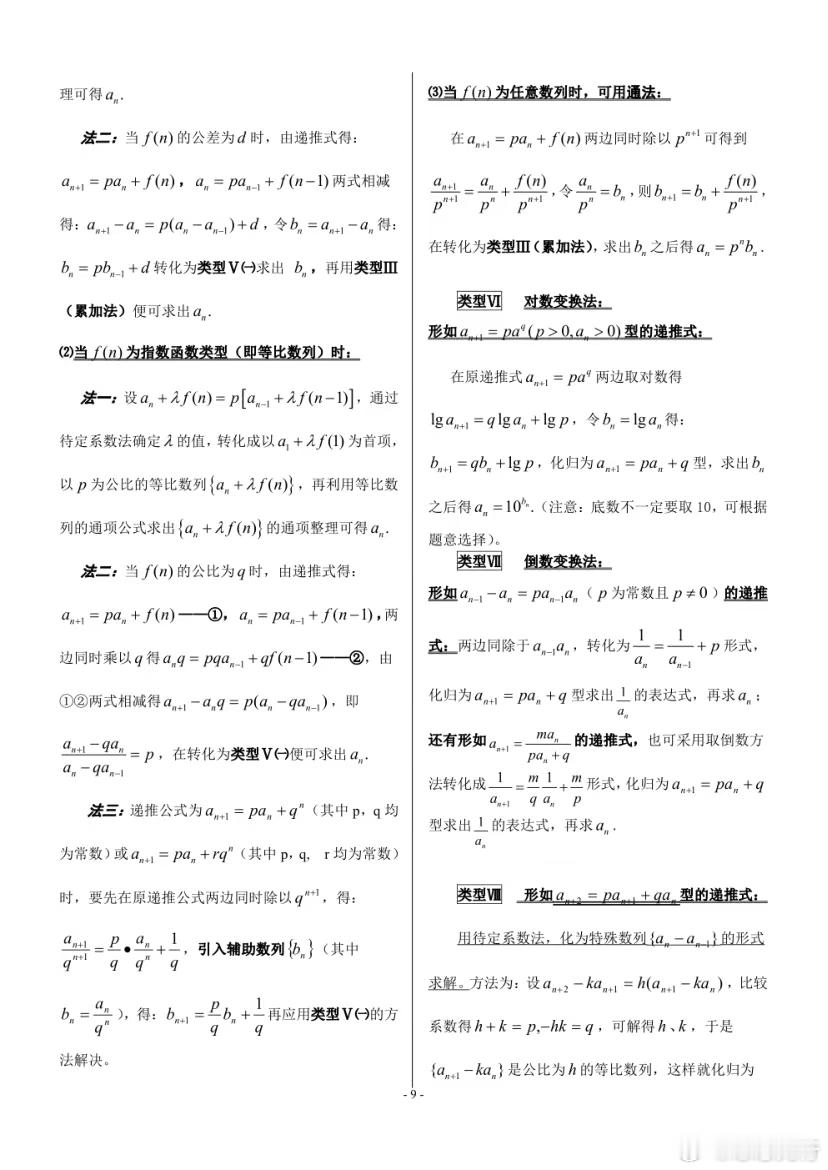 理可得 aₙ．
法二：当 f(n) 的公差为 d 时，由递推式得：
aₙ₊₁ = paₙ + f(n)，aₙ = paₙ₋₁ + f(n−1) 两式相减
得：aₙ₊₁ − aₙ = p(aₙ − aₙ₋₁) + d，令 bₙ = aₙ₊₁ − aₙ 得：
bₙ = pbₙ₋₁ + d 转化为类型Ⅴ㈠求出 bₙ，再用类型Ⅲ
（累加法）便可求出 aₙ．
⑵当 f(n) 为指数函数类型（即等比数列）时：
法一：设 aₙ + λf(n) = p[aₙ₋₁ + λf(n−1)]，通过
待定系数法确定 λ 的值，转化成以 a₁ + λf(1) 为首项，
以 p 为公比的等比数列{aₙ + λf(n)}，再利用等比数
列的通项公式求出{aₙ + λf(n)}的通项整理可得 aₙ．
法二：当 f(n) 的公比为 q 时，由递推式得：
aₙ₊₁ = paₙ + f(n)——①，aₙ = paₙ₋₁ + f(n−1)，两
边同时乘以 q 得 aₙq = pqaₙ₋₁ + qf(n−1)——②，由
①②两式相减得 aₙ₊₁ − aₙq = p(aₙ − qaₙ₋₁)，即
(aₙ₊₁ − qaₙ)/(aₙ − qaₙ₋₁) = p，在转化为类型Ⅴ㈠便可求出 aₙ．
法三：递推公式为 aₙ₊₁ = paₙ + qⁿ（其中 p，q 均
为常数）或 aₙ₊₁ = paₙ + rqⁿ（其中 p，q， r 均为常数）
时，要先在原递推公式两边同时除以 qⁿ⁺¹，得：
aₙ₊₁/qⁿ⁺¹ = p/q • aₙ/qⁿ + 1/q，引入辅助数列{bₙ}（其中
bₙ = aₙ/qⁿ），得：bₙ₊₁ = p/q bₙ + 1/q 再应用类型Ⅴ㈠的方
法解决。
⑶当 f(n) 为任意数列时，可用通法：
在 aₙ₊₁ = paₙ + f(n) 两边同时除以 pⁿ⁺¹ 可得到
aₙ₊₁/pⁿ⁺¹ = aₙ/pⁿ + f(n)/pⁿ⁺¹，令 aₙ/pⁿ = bₙ，则 bₙ₊₁ = bₙ + f(n)/pⁿ⁺¹，
在转化为类型Ⅲ（累加法），求出 bₙ 之后得 aₙ = pⁿbₙ．
类型Ⅵ 对数变换法：
形如 aₙ₊₁ = pa^q (p > 0, aₙ > 0) 型的递推式：
在原递推式 aₙ₊₁ = pa^q 两边取对数得
lg aₙ₊₁ = q lg aₙ + lg p，令 bₙ = lg aₙ 得：
bₙ₊₁ = qbₙ + lg p，化归为 aₙ₊₁ = paₙ + q 型，求出 bₙ
之后得 aₙ = 10^bₙ．（注意：底数不一定要取 10，可根据
题意选择）。
类型Ⅶ 倒数变换法：
形如 aₙ₋₁ − aₙ = paₙ₋₁aₙ（ p 为常数且 p ≠ 0 ）的递推
式：两边同除于 aₙ₋₁aₙ，转化为 1/aₙ = 1/aₙ₋₁ + p 形式，
化归为 aₙ₊₁ = paₙ + q 型求出 1/aₙ 的表达式，再求 aₙ；
还有形如 aₙ₊₁ = maₙ/(paₙ + q) 的递推式，也可采用取倒数方
法转化成 1/aₙ₊₁ = m/q 1/aₙ + m/p 形式，化归为 aₙ₊₁ = paₙ + q
型求出 1/aₙ 的表达式，再求 aₙ．
类型Ⅷ 形如 aₙ₊₂ = paₙ₊₁ + qaₙ 型的递推式：
用待定系数法，化为特殊数列{aₙ − aₙ₋₁}的形式
求解。方法为：设 aₙ₊₂ − kaₙ₊₁ = h(aₙ₊₁ − kaₙ)，比较
系数得 h + k = p,−hk = q，可解得 h、k，于是
{aₙ₊₁ − kaₙ}是公比为 h 的等比数列，这样就化归为
- 9 -